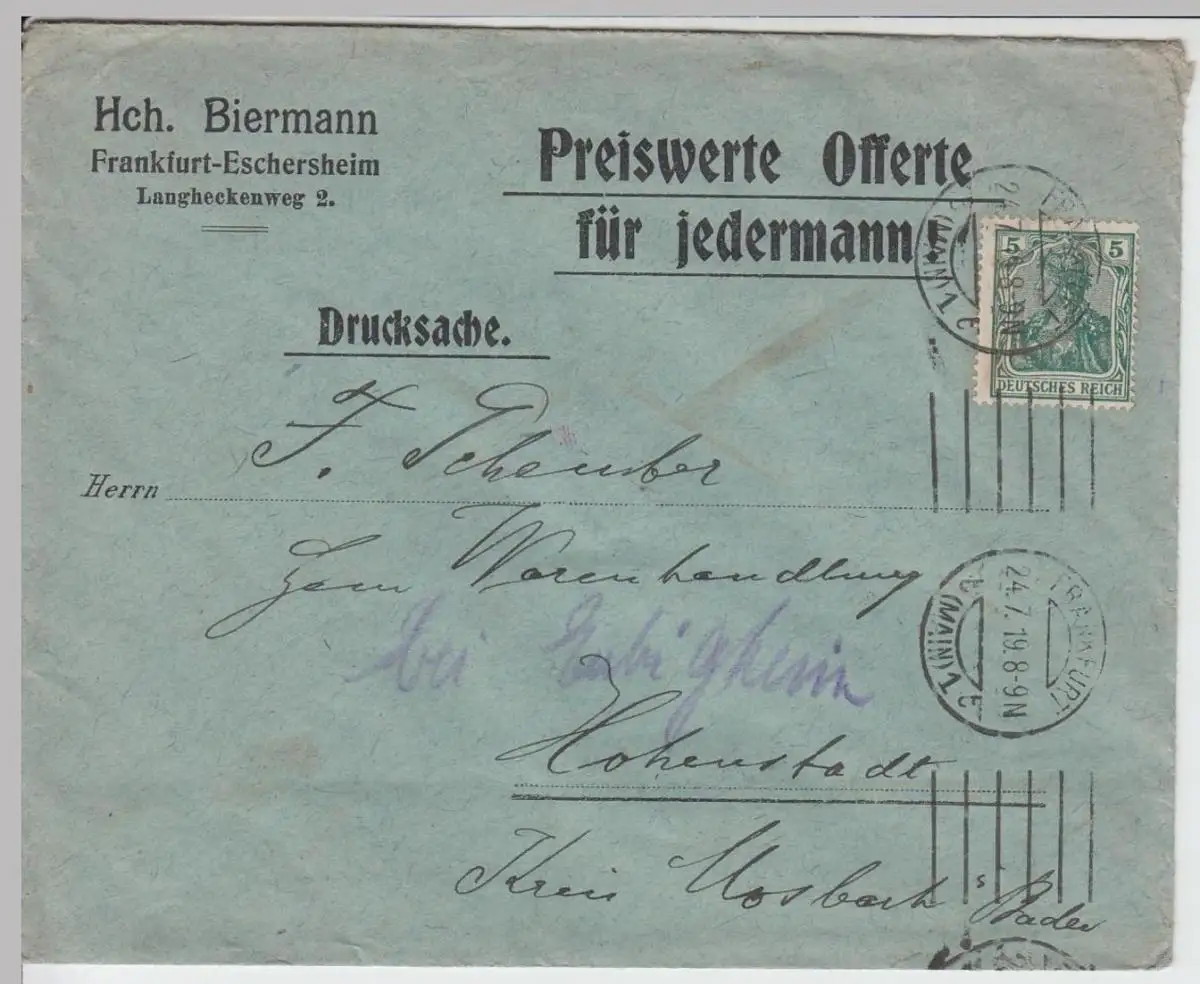 Hch. Biermann
Frankfurt-Eschersheim
Langheckenweg 2.
Preiswerte Offerte
für jedermann!
Drucksache.
5 5
DEUTSCHES REICH
FRANKFURT (MAIN) 1
24.7.19.8-9N
Herrn F. Scheuber
Warenhandlung
bei
Hohenstadt
FRANKFURT (MAIN) 1
24.7.19.8-9N
Kreis Mosbach
s
Baden